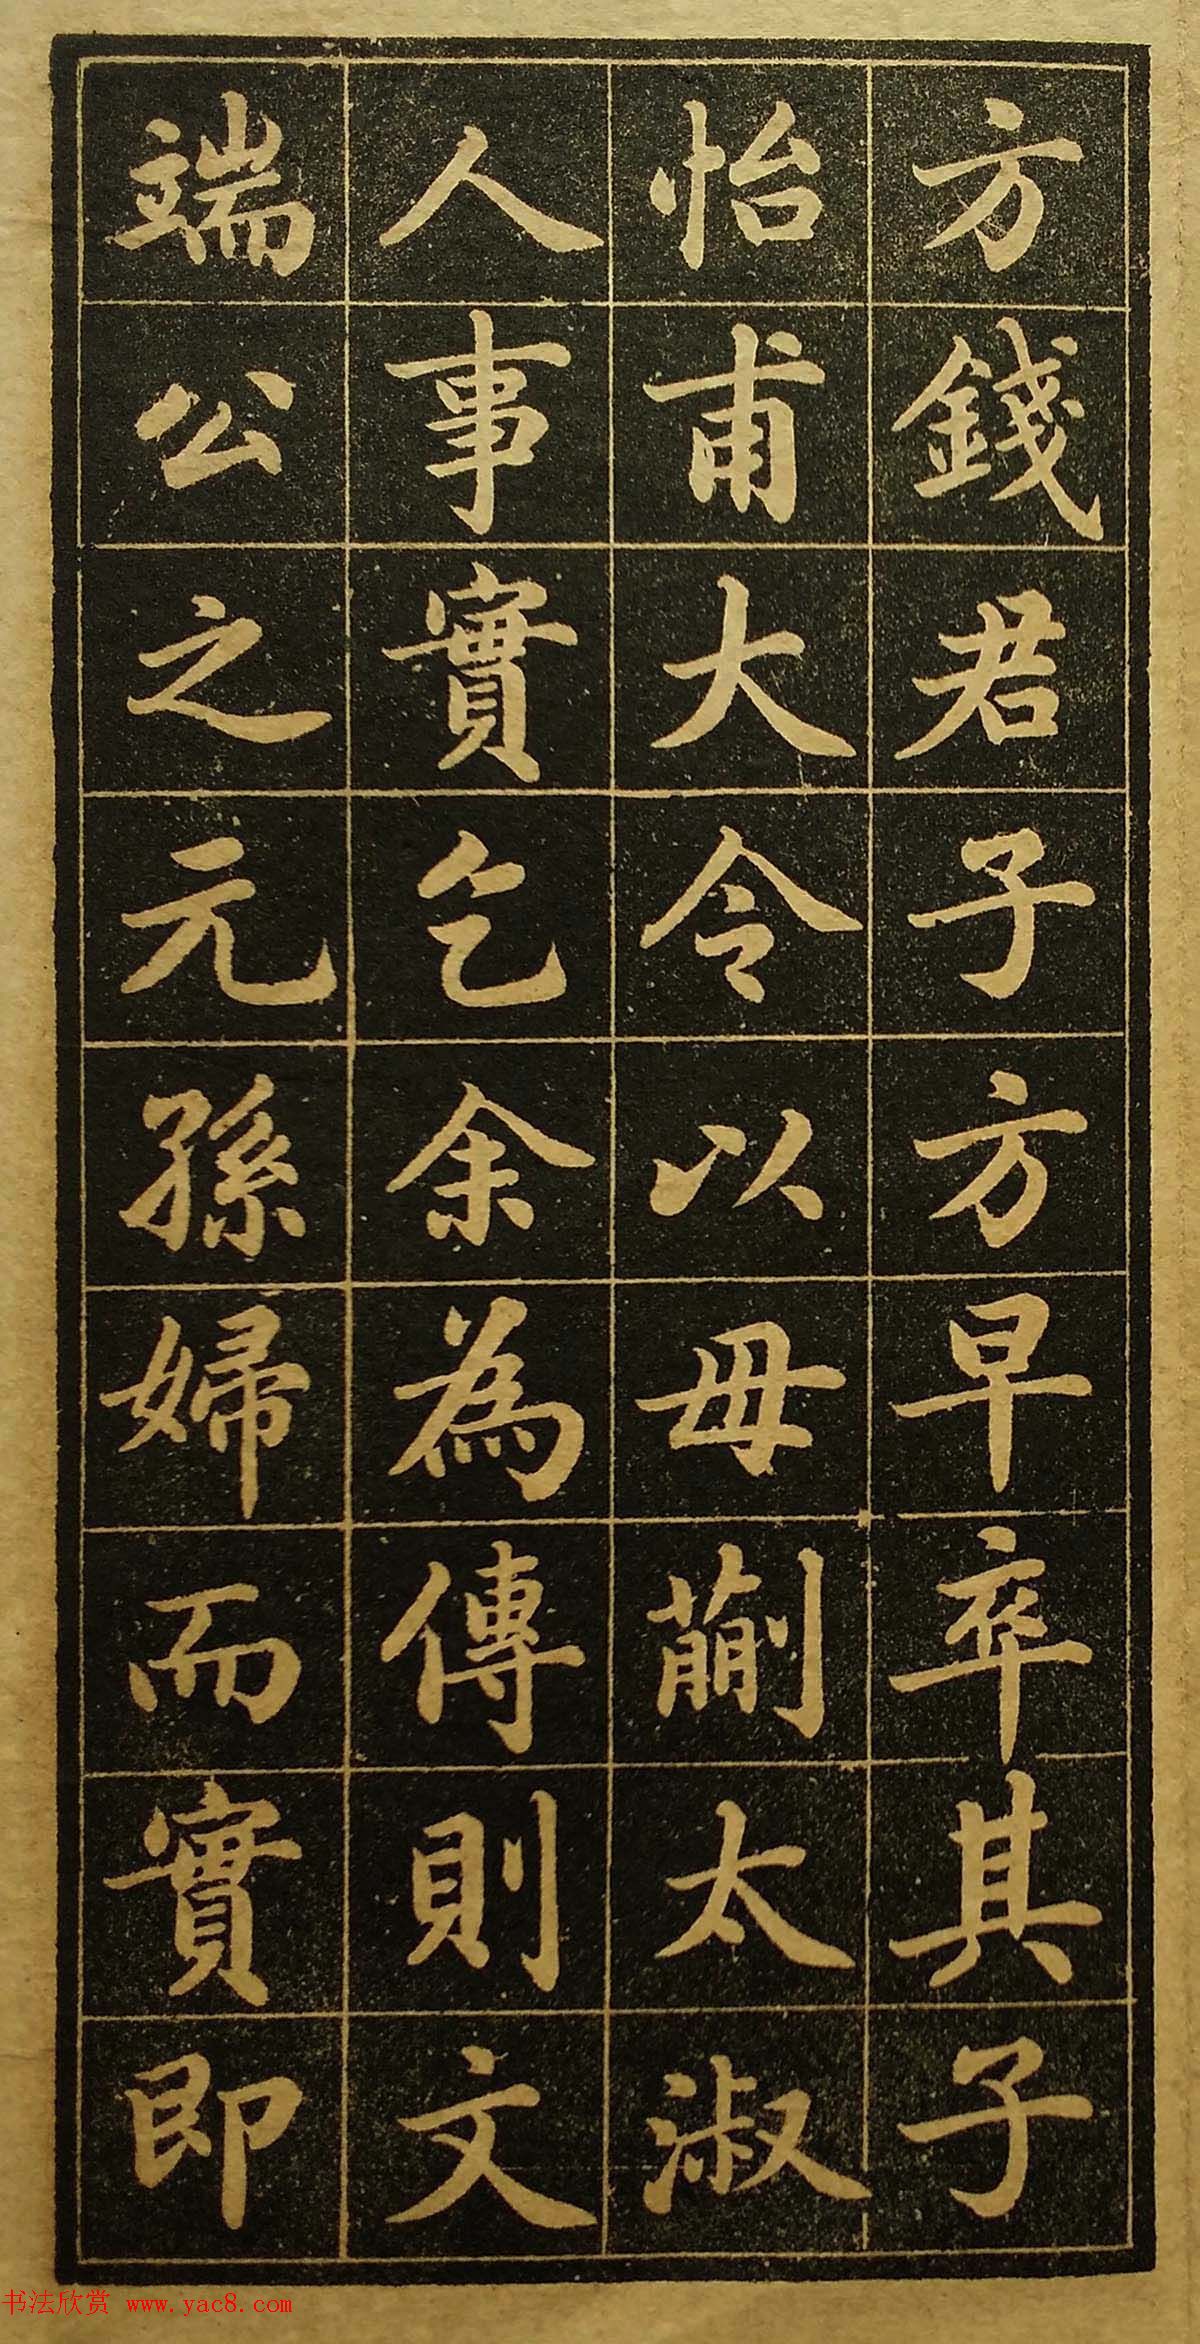 方錢君子方早卒其子
怡甫大令以母蒯太淑
人事實乞余為傳則文
端公之元孫婦而實即
书法欣赏 www.yac8.com